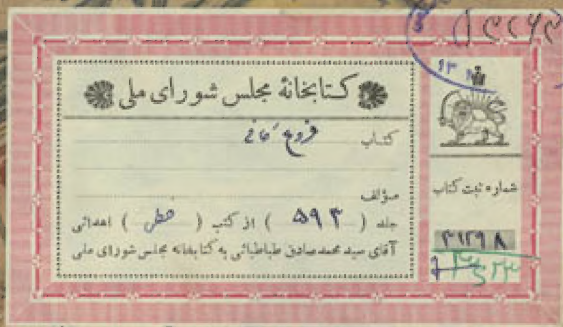 کتابخانهٔ مجلس شورای ملی
کتاب فروع کافی
مؤلف
جلد ( ۵۹۳ ) از کتب ( خطی ) اهدائی
آقای سید محمد صادق طباطبائی به کتابخانه مجلس شورای ملی
شماره ثبت کتاب
۳۱۲۹۸